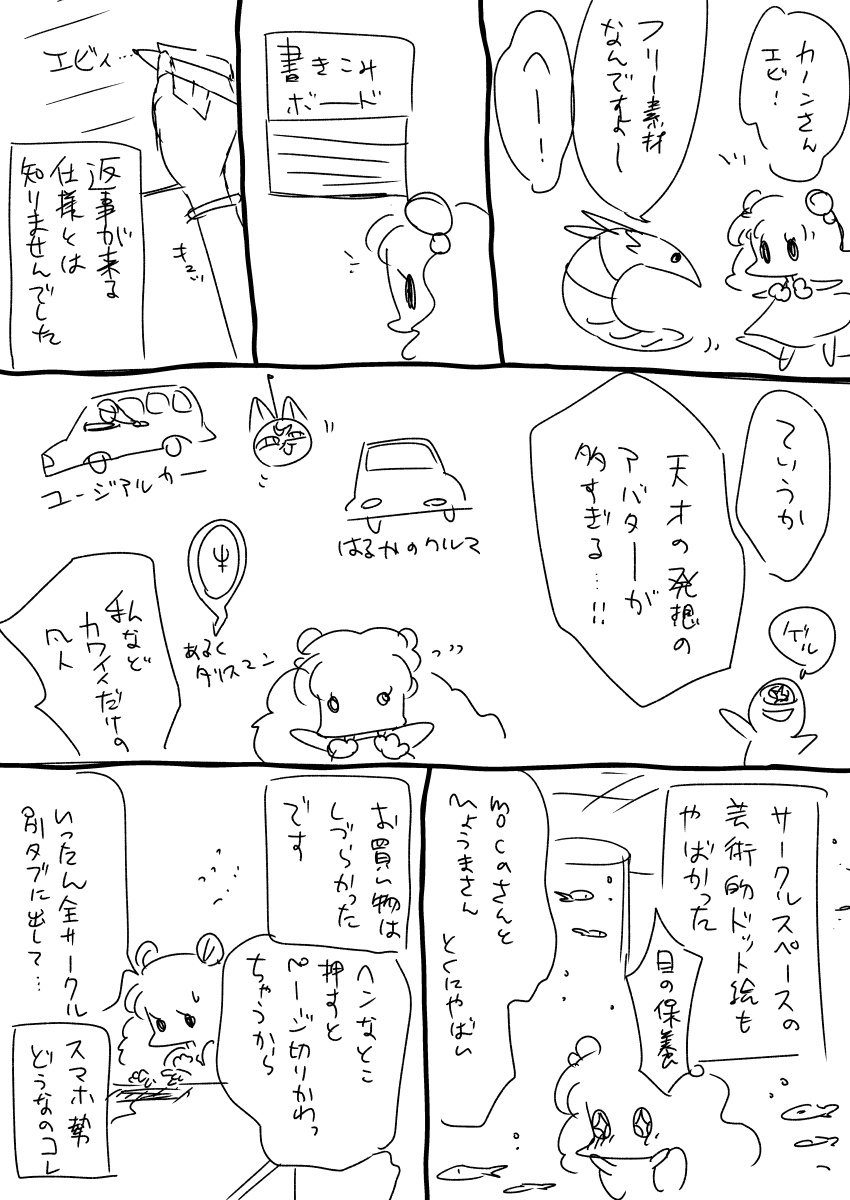 カーンさん
エビ!
フリー素材
なんですよー
へー!
書きこみ
ボード
エビィ…
キュッ
返事が来る
仕様とは
知りませんでした
ていうか
天才の発想の
アバターが
多すぎる…!!
ゲル
はるかのクルマ
ユージアルカー
あるく
タリスマン
私など
カワイイだけの
凡人
サークルスペースの
芸術的ドット絵も
やばかった
目の保養
mocaさんと
ひょうまさん
とくにやばい
お買い物は
しづらかった
です
ヘンなとこ
押すと
ページ切りかわっ
ちゃうから
いったん全サークル
別タブに出して…
スマホ勢
どうなのコレ